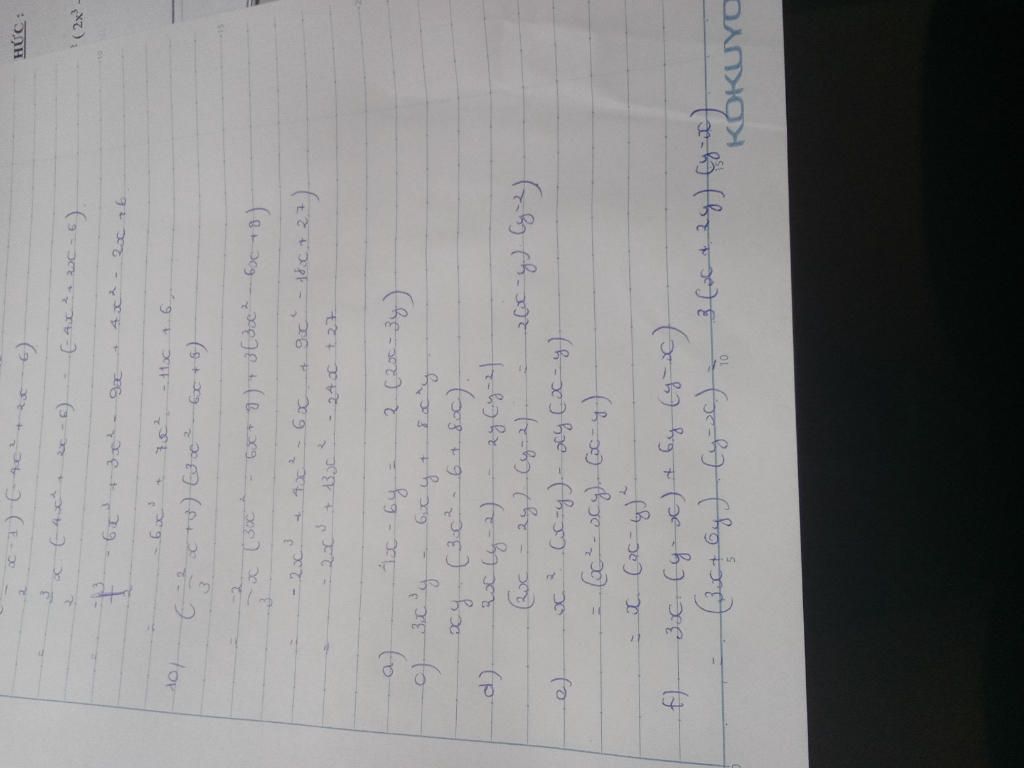 HỨC :
(2x³ -
x - 1) (-4x² + 2x - 6)
= 3/2 x (-4x² + 2x - 6) - (-4x² + 2x - 6)
= - 6x³ + 3x² - 9x + 4x² - 2x + 6
= - 6x³ + 7x² - 11x + 6
10) (-2/3 x + 3) (3x² - 6x + 9)
= -2/3 x (3x² - 6x + 9) + 3(3x² - 6x + 9)
= - 2x³ + 4x² - 6x + 9x² - 18x + 27)
= - 2x³ + 13x² - 24x + 27
a) 4x - 6y = 2 (2x - 3y)
c) 3x³y - 6xy + 8x²y
xy. (3x² - 6 + 8x)
d) 2x(y-2) - 2y(y-2)
(2x - 2y). (y-2) = 2(x-y). (y-2)
e) x² (x-y) - xy(x-y)
= (x² - xy). (x-y)
= x (x-y)²
f) 3x. (y-x) + 6y (y-x)
= (3x + 6y). (y-x) = 3(x + 2y) (y-x)
5 10 15
KOKUYO